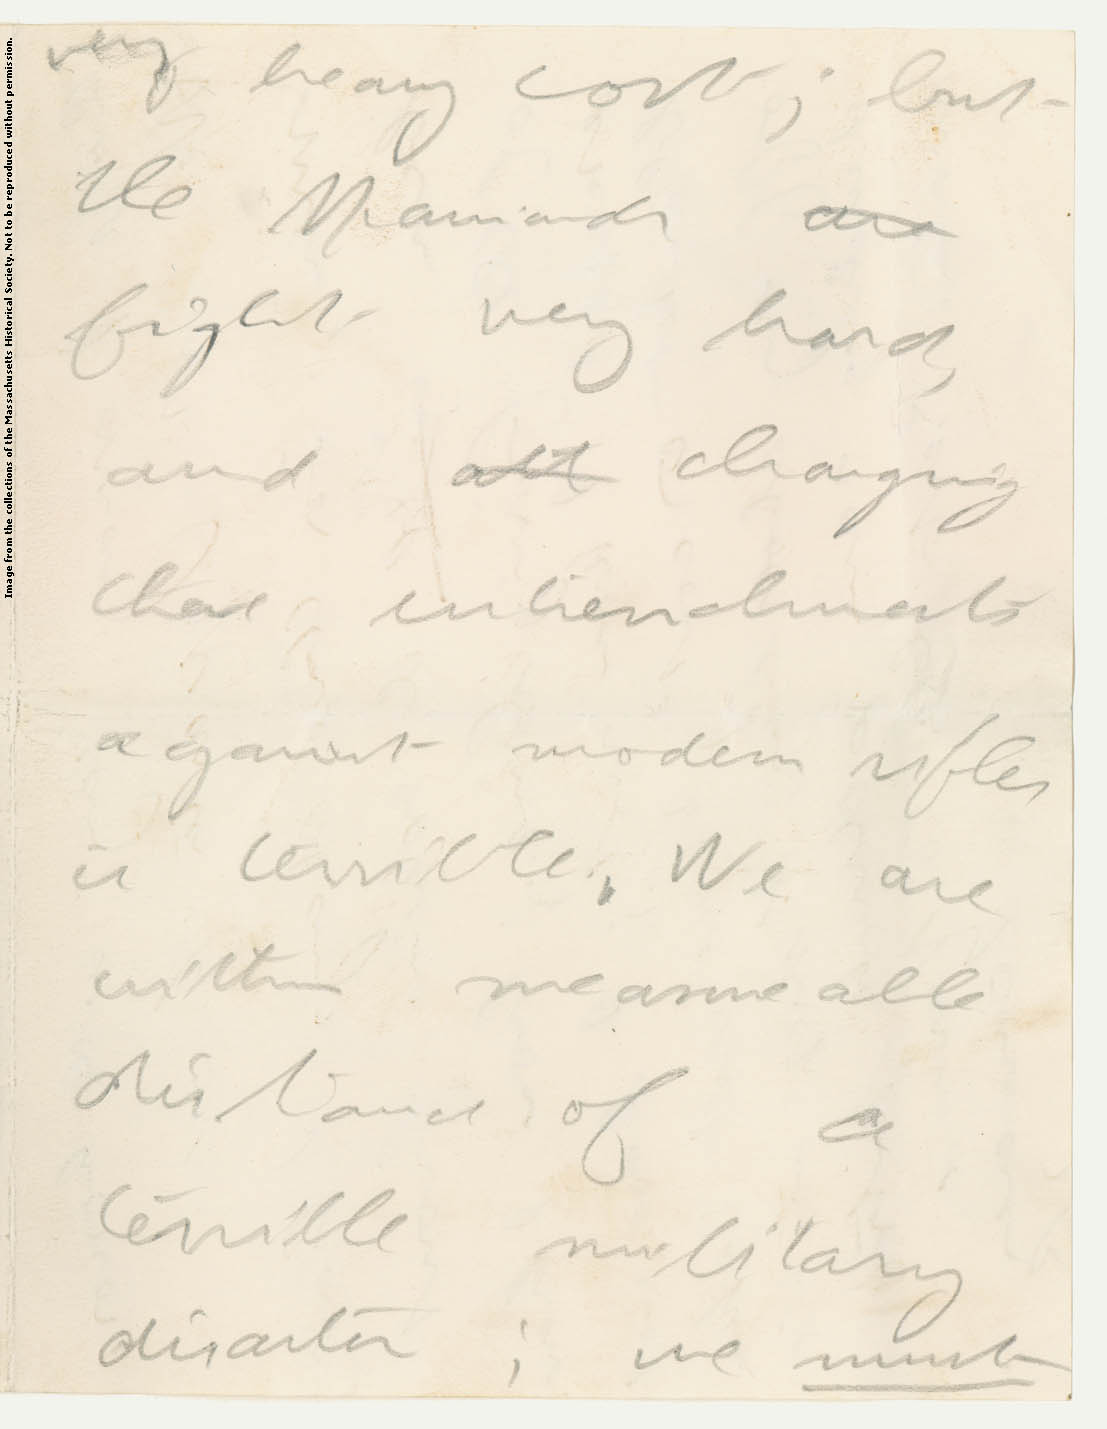 Image from the collections of the Massachusetts Historical Society. Not to be reproduced without permission.
very heavy cost; but
the Spaniards are
fight very hard,
and att charging
these intrenchments
against modern rifles
is terrible. We are
within measureable
distance of a
terrible military
disaster; we must